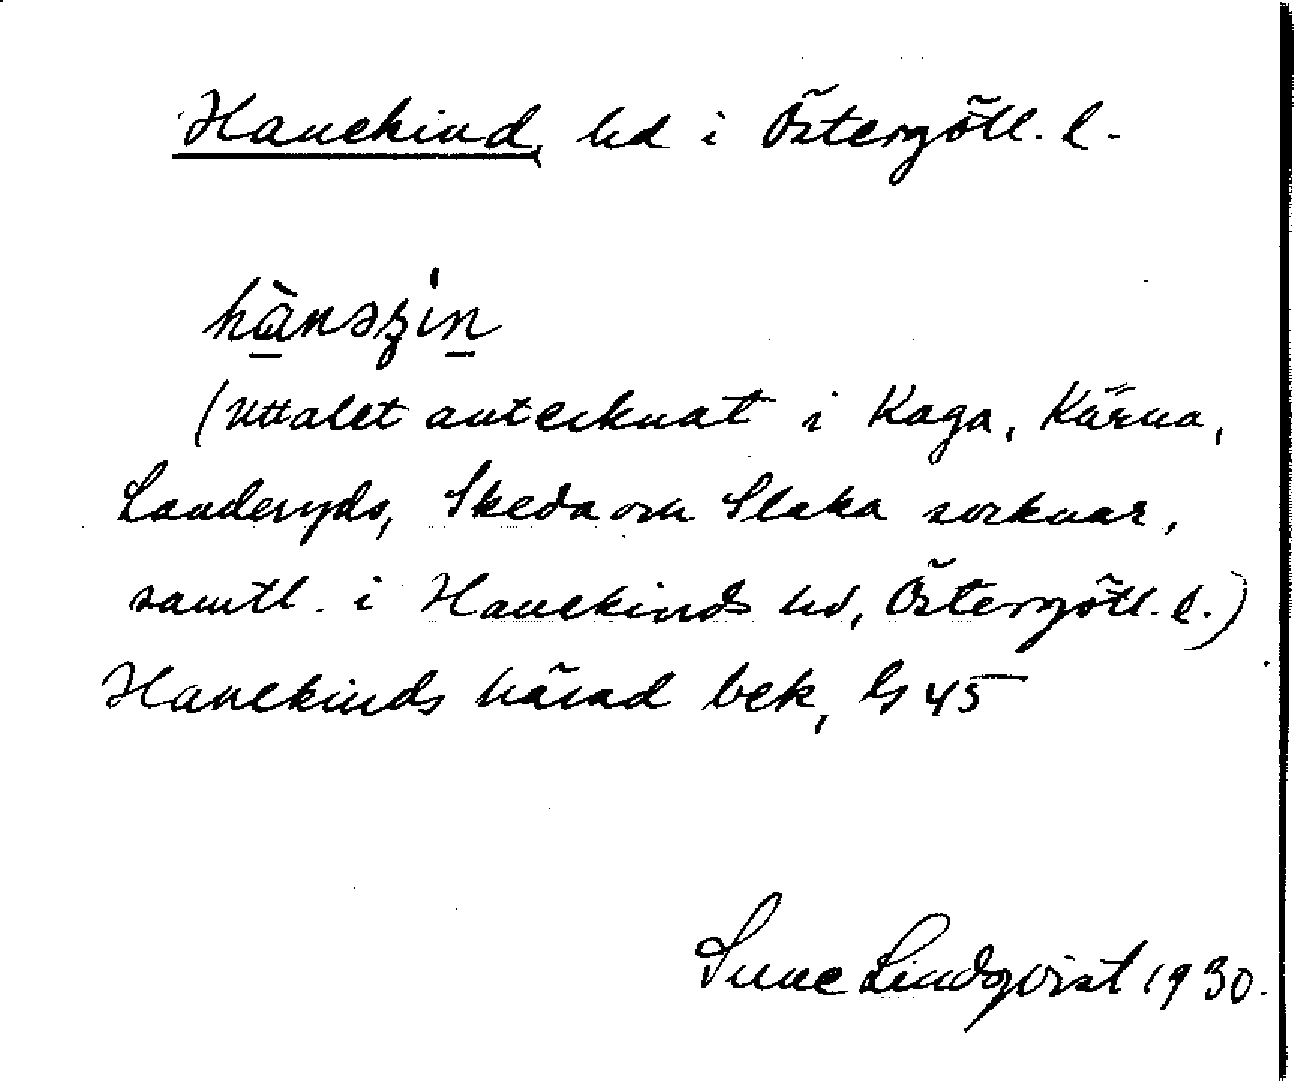 Hanekind, hd i Östergötl. l.
hànəʒin
(Uttalet antecknat i Kaga, Kärna,
Landeryds, Skeda och Slaka socknar,
samtl. i Hanekinds hd, Östergötl. l.)
Hanekinds härad bek, G 45
Sune Lindqvist 1930.